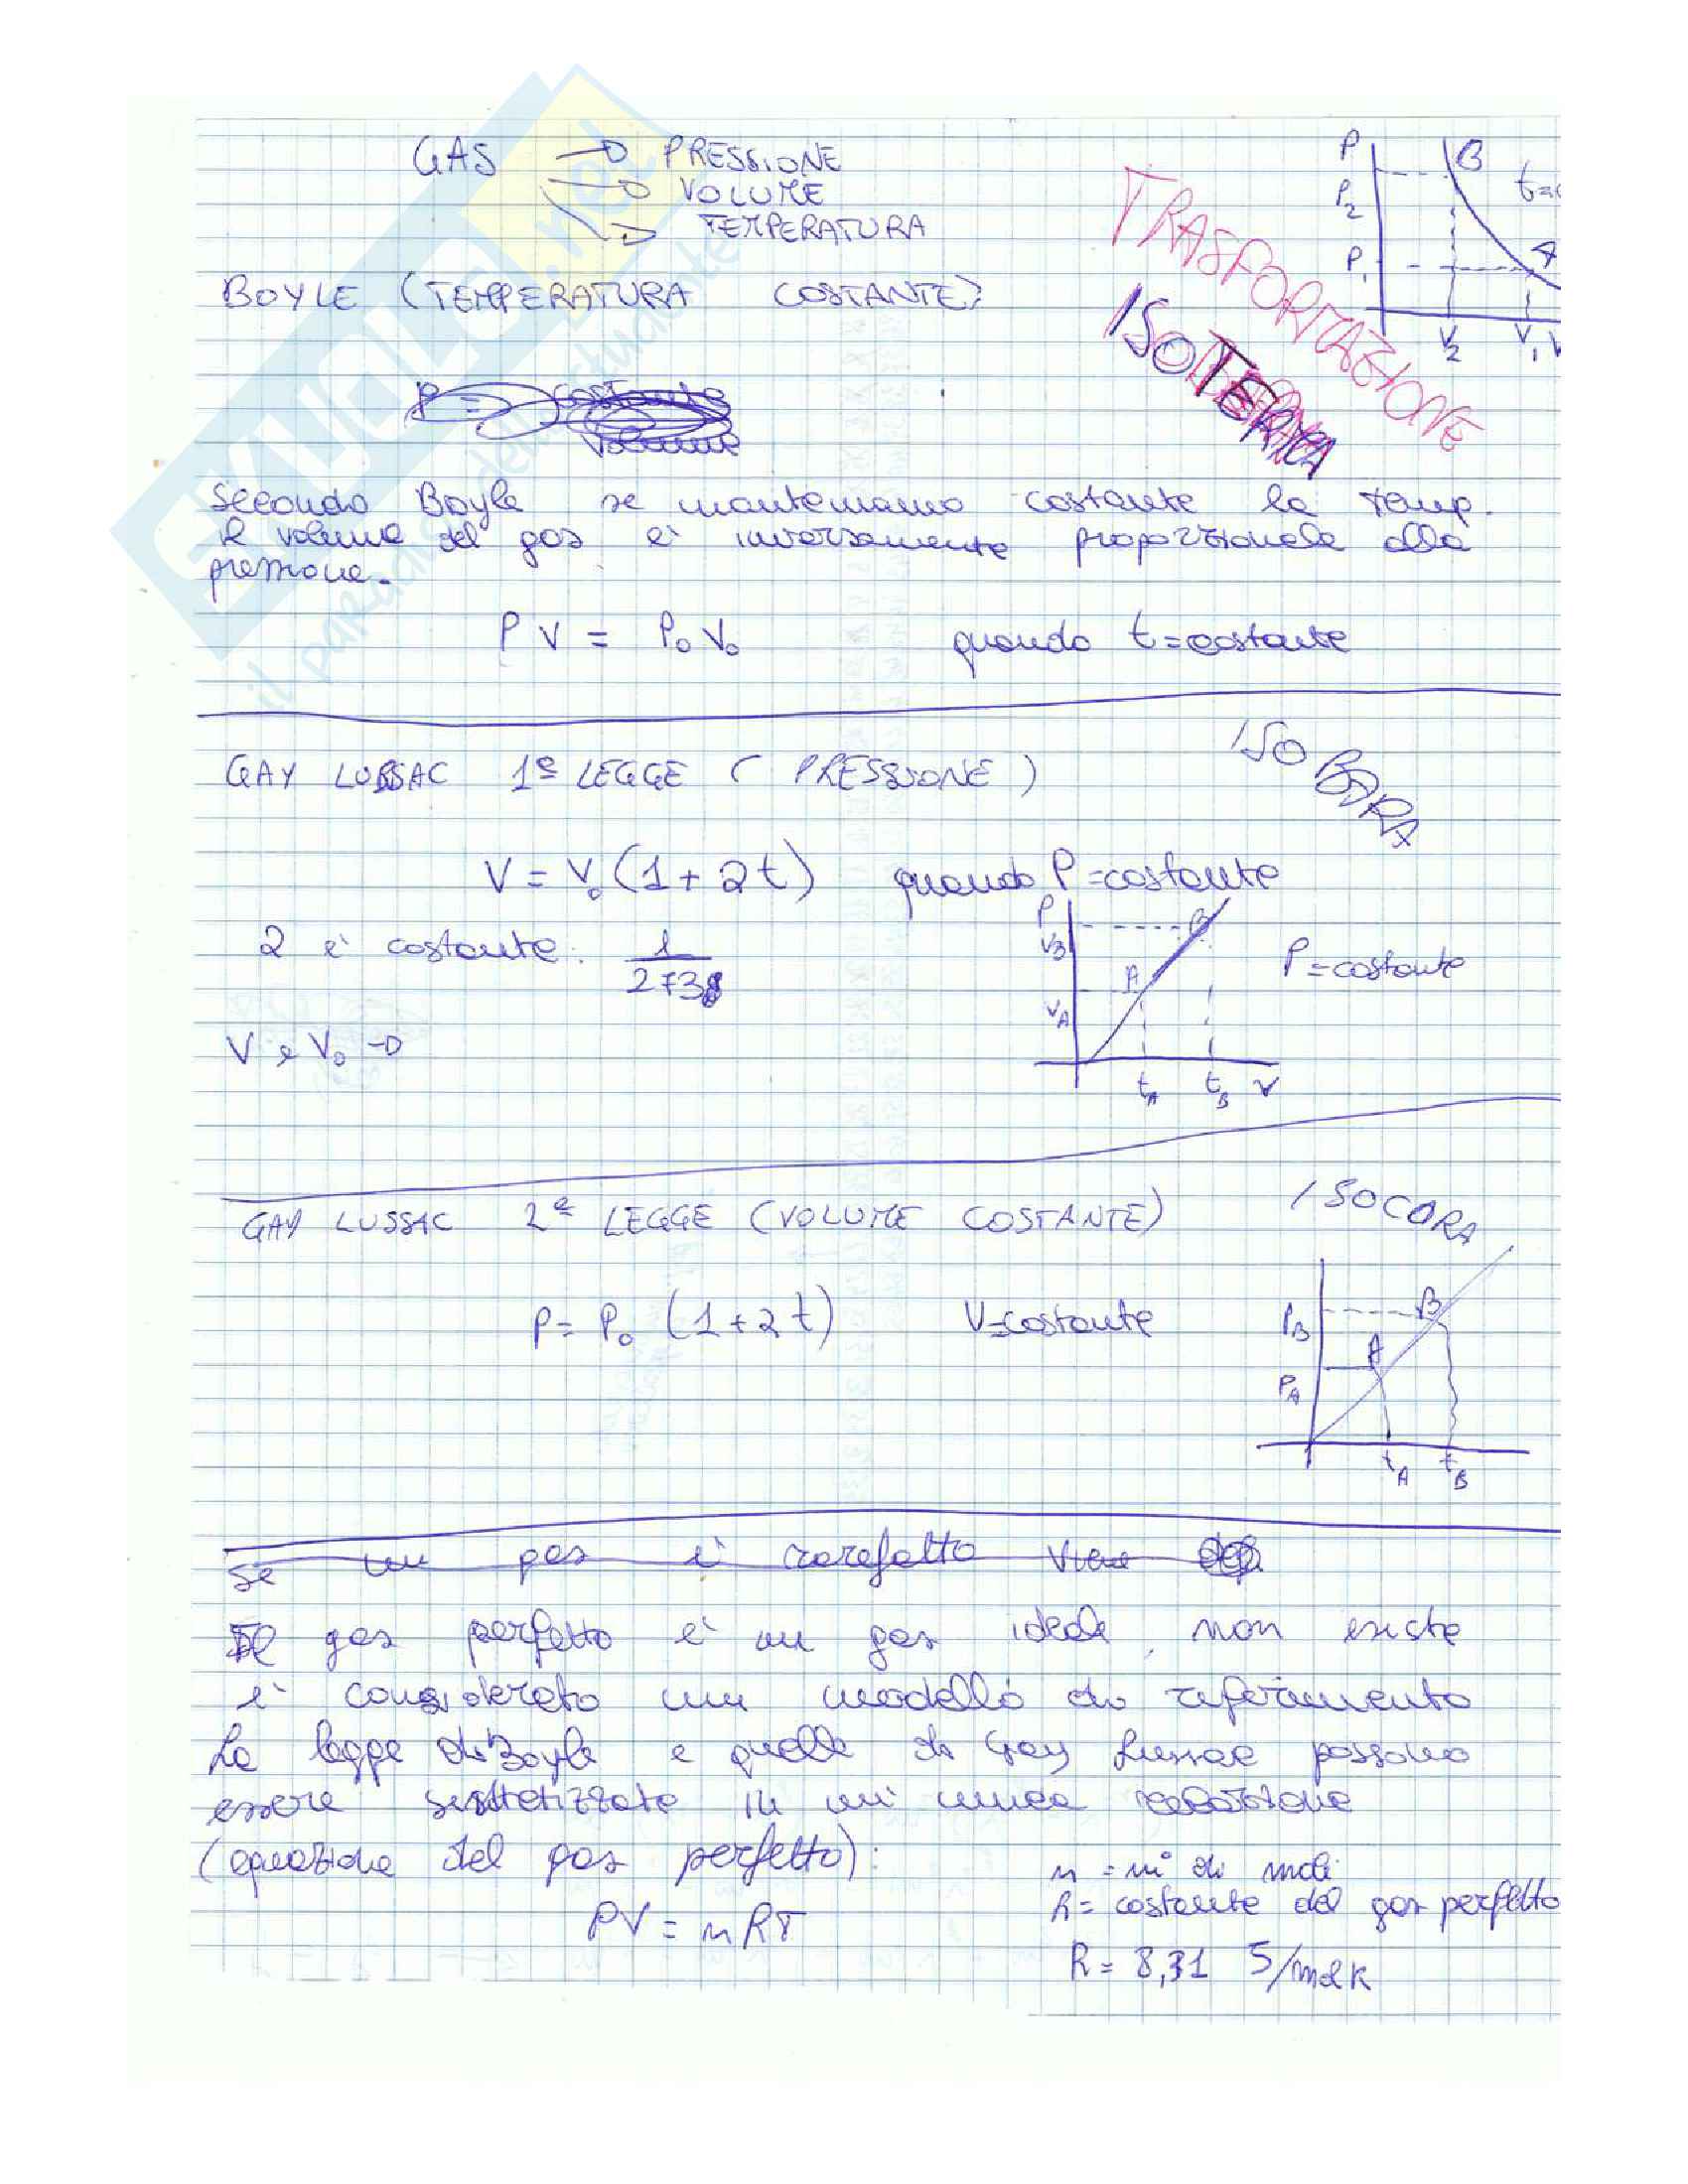 GAS → PRESSIONE
→ VOLUME
→ TEMPERATURA
BOYLE (TEMPERATURA COSTANTE)
TRASFORMAZIONE
ISOTERMA
P
P2
P1
B
A
t=
V2
V1
V
P = costante
volume
Secondo Boyle se manteniamo costante la temp.
il volume del gas è inversamente proporzionale alla
pressione.
PV = P₀V₀ quando t=costante
GAY LUSSAC 1ª LEGGE (PRESSIONE)
ISOBARA
V = V₀(1+2t) quando P=costante
2 è costante: 1/273
P
VB
VA
A
B
tA tB V
P=costante
V e V₀ →
GAY LUSSAC 2ª LEGGE (VOLUME COSTANTE)
ISOCORA
P = P₀ (1+2t) V=costante
PB
PA
A
B
tA tB
Se un gas è rarefatto viene
Il gas perfetto è un gas ideale, non esiste
è considerato un modello di riferimento
La legge di Boyle e quelle di Gay Lussac possono
essere sintetizzate in un'unica relazione
(equazione del gas perfetto):
PV = nRT
n = n° di moli
R = costante del gas perfetto
R = 8,31 J/mol K
SKUOLA.net
il paradiso dello studente